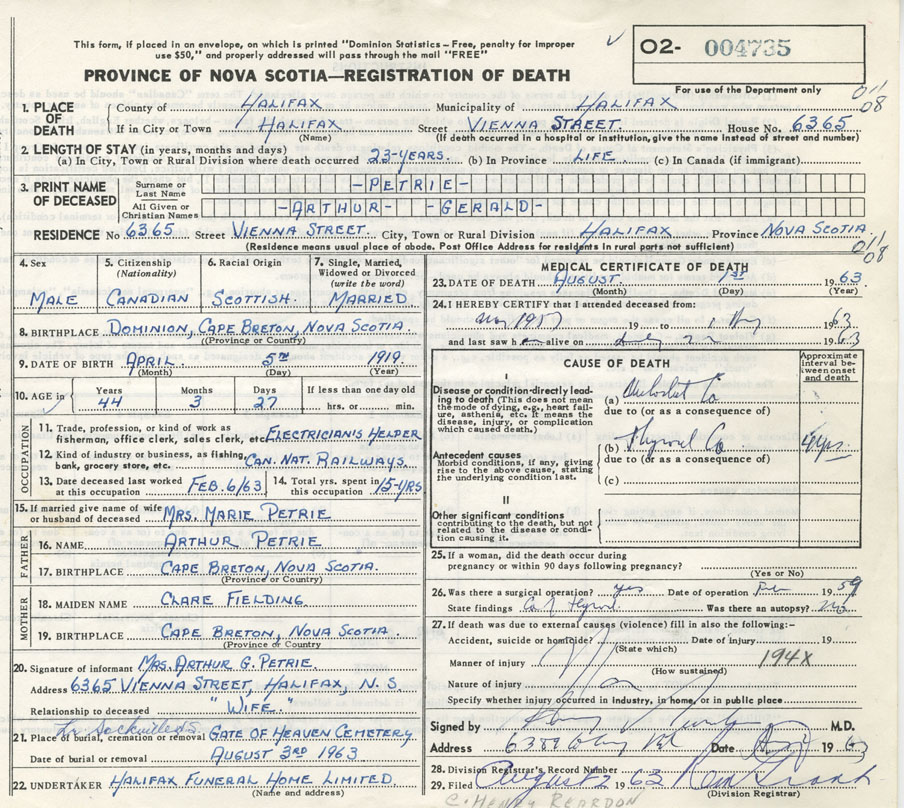 This form, if placed in an envelope, on which is printed "Dominion Statistics – Free, penalty for improper
use $50," and properly addressed will pass through the mail "FREE"
O2- 004735
PROVINCE OF NOVA SCOTIA—REGISTRATION OF DEATH
For use of the Department only
011
08
1. PLACE OF DEATH
County of HALIFAX Municipality of HALIFAX
If in City or Town HALIFAX Street VIENNA STREET. House No. 6365
(Name) (If death occurred in a hospital or institution, give the name instead of street and number)
2. LENGTH OF STAY (in years, months and days)
(a) In City, Town or Rural Division where death occurred 23-YEARS. (b) In Province LIFE. (c) In Canada (if immigrant)
3. PRINT NAME OF DECEASED
Surname or Last Name -PETRIE-
All Given or Christian Names -ARTHUR- -GERALD-
RESIDENCE No 6365 Street VIENNA STREET. City, Town or Rural Division HALIFAX Province NOVA SCOTIA
(Residence means usual place of abode. Post Office Address for residents in rural parts not sufficient)
011
08
4. Sex 5. Citizenship (Nationality) 6. Racial Origin 7. Single, Married, Widowed or Divorced (write the word)
MALE CANADIAN SCOTTISH. MARRIED
8. BIRTHPLACE DOMINION, CAPE BRETON, NOVA SCOTIA
(Province or Country)
9. DATE OF BIRTH APRIL 5TH 1919.
(Month) (Day) (Year)
10. AGE in Years Months Days If less than one day old
44 3 27 hrs. or min.
OCCUPATION
11. Trade, profession, or kind of work as
fisherman, office clerk, sales clerk, etc. ELECTRICIANS HELPER
12. Kind of industry or business, as fishing,
bank, grocery store, etc. CAN. NAT. RAILWAYS.
13. Date deceased last worked at this occupation FEB. 6/63 14. Total yrs. spent in this occupation 15-YRS
15. If married give name of wife
or husband of deceased MRS. MARIE PETRIE
FATHER
16. NAME ARTHUR PETRIE
17. BIRTHPLACE CAPE BRETON, NOVA SCOTIA.
(Province or Country)
MOTHER
18. MAIDEN NAME CLARE FIELDING
19. BIRTHPLACE CAPE BRETON, NOVA SCOTIA.
(Province or Country)
20. Signature of informant MRS. ARTHUR G. PETRIE
Address 6365 VIENNA STREET, HALIFAX, N. S.
Relationship to deceased "WIFE."
Sackville
21. Place of burial, cremation or removal GATE OF HEAVEN CEMETERY
Date of burial or removal AUGUST 3RD 1963
22. UNDERTAKER HALIFAX FUNERAL HOME LIMITED.
(Name and address)
MEDICAL CERTIFICATE OF DEATH
23. DATE OF DEATH AUGUST. 1ST 1963
(Month) (Day) (Year)
24. I HEREBY CERTIFY that I attended deceased from:
1957 19 to 1 1963
and last saw h alive on July 22 1963
CAUSE OF DEATH
Approximate interval between onset and death
I
Disease or condition directly leading to death (This does not mean the mode of dying, e.g., heart failure, asthenia, etc. It means the disease, injury, or complication which caused death.)
(a) Ca
due to (or as a consequence of)
Antecedent causes
Morbid conditions, if any, giving rise to the above cause, stating the underlying condition last.
(b) Thyroid Ca 4 yrs.
due to (or as a consequence of)
(c)
II
Other significant conditions
contributing to the death, but not related to the disease or condition causing it.
25. If a woman, did the death occur during
pregnancy or within 90 days following pregnancy?
(Yes or No)
26. Was there a surgical operation? yes Date of operation 1959
State findings Ca Thyroid Was there an autopsy? no
27. If death was due to external causes (violence) fill in also the following:-
Accident, suicide or homicide? Date of injury 19
(State which)
Manner of injury 194X
(How sustained)
Nature of injury
Specify whether injury occurred in industry, in home, or in public place
Signed by M.D.
Address Date 1963
28. Division Registrar's Record Number
29. Filed August 2 1963
(Division Registrar)
C. HENRY REARDON